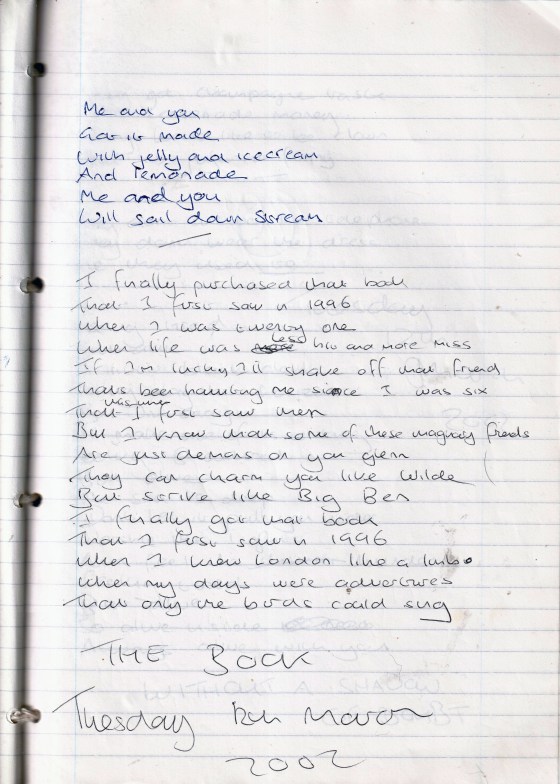 Me and you
Got it made
With jelly and icecream
And lemonade
Me and you
Will sail down stream
I finally purchased that book
That I first saw in 1996
When I was twenty one
When life was less hit and more miss
If I'm lucky I'll shake off that friend
Thats been haunting me since I was six
That was when I first saw them
But I know that some of these imaginary friends
Are just demons on you
They can charm you like Wilde
But strive like Big Ben
I finally got that book
That I first saw in 1996
When I knew London like a limb
When my days were adventures
That only the birds could sing
THE BOOK
Tuesday March
2002